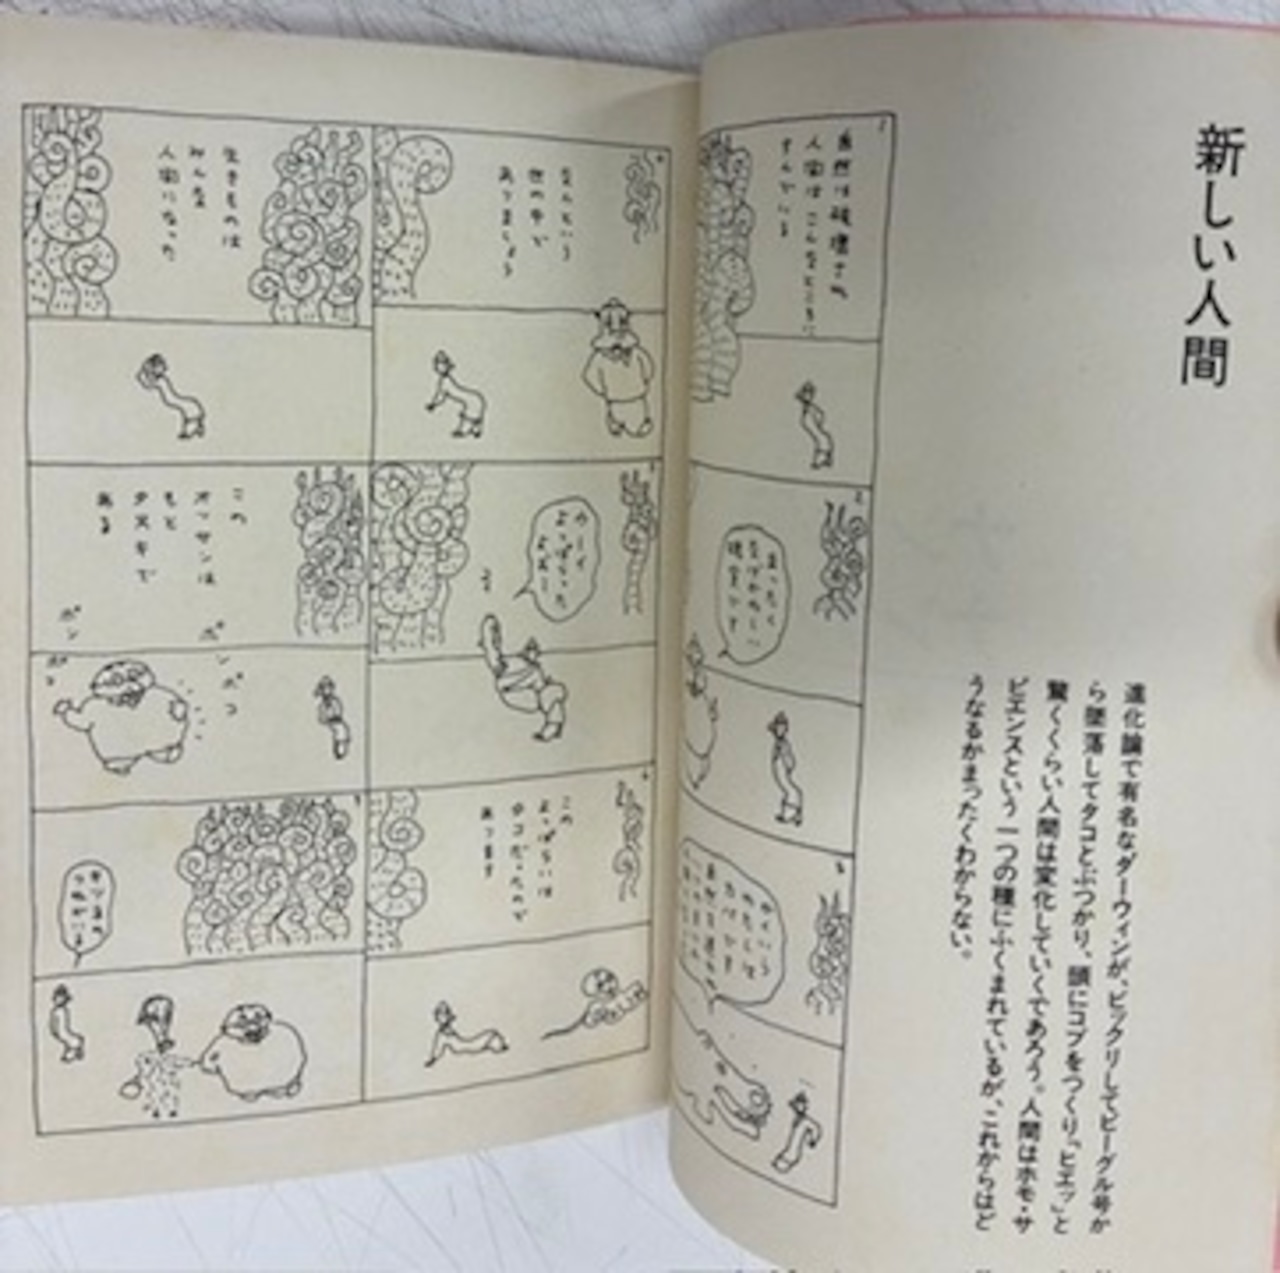 新しい人間
進化論で有名なダーウィンが、ビックリしてビーグル号か
ら墜落してタコとぶつかり、頭にコブをつくり「ヒエッ」と
驚くくらい人間は変化していくであろう。人間はホモ・サ
ピエンスという一つの種にふくまれているが、これからはど
うなるかまったくわからない。
1
自然は破壊され
人間はこんなところに
すんでいる
2
まったく
なげかわしい
現実です
3
かくいう
わたしは
カバです
4
なんという
世の中で
ありましょう
5
ウーイ
よっぱらった
よおー
6
この
よっぱらいは
タコだったので
あります
生きものは
みんな
人間になった
この
オッサンは
もと
タヌキで
ある
ポンポコ
ポンポコ